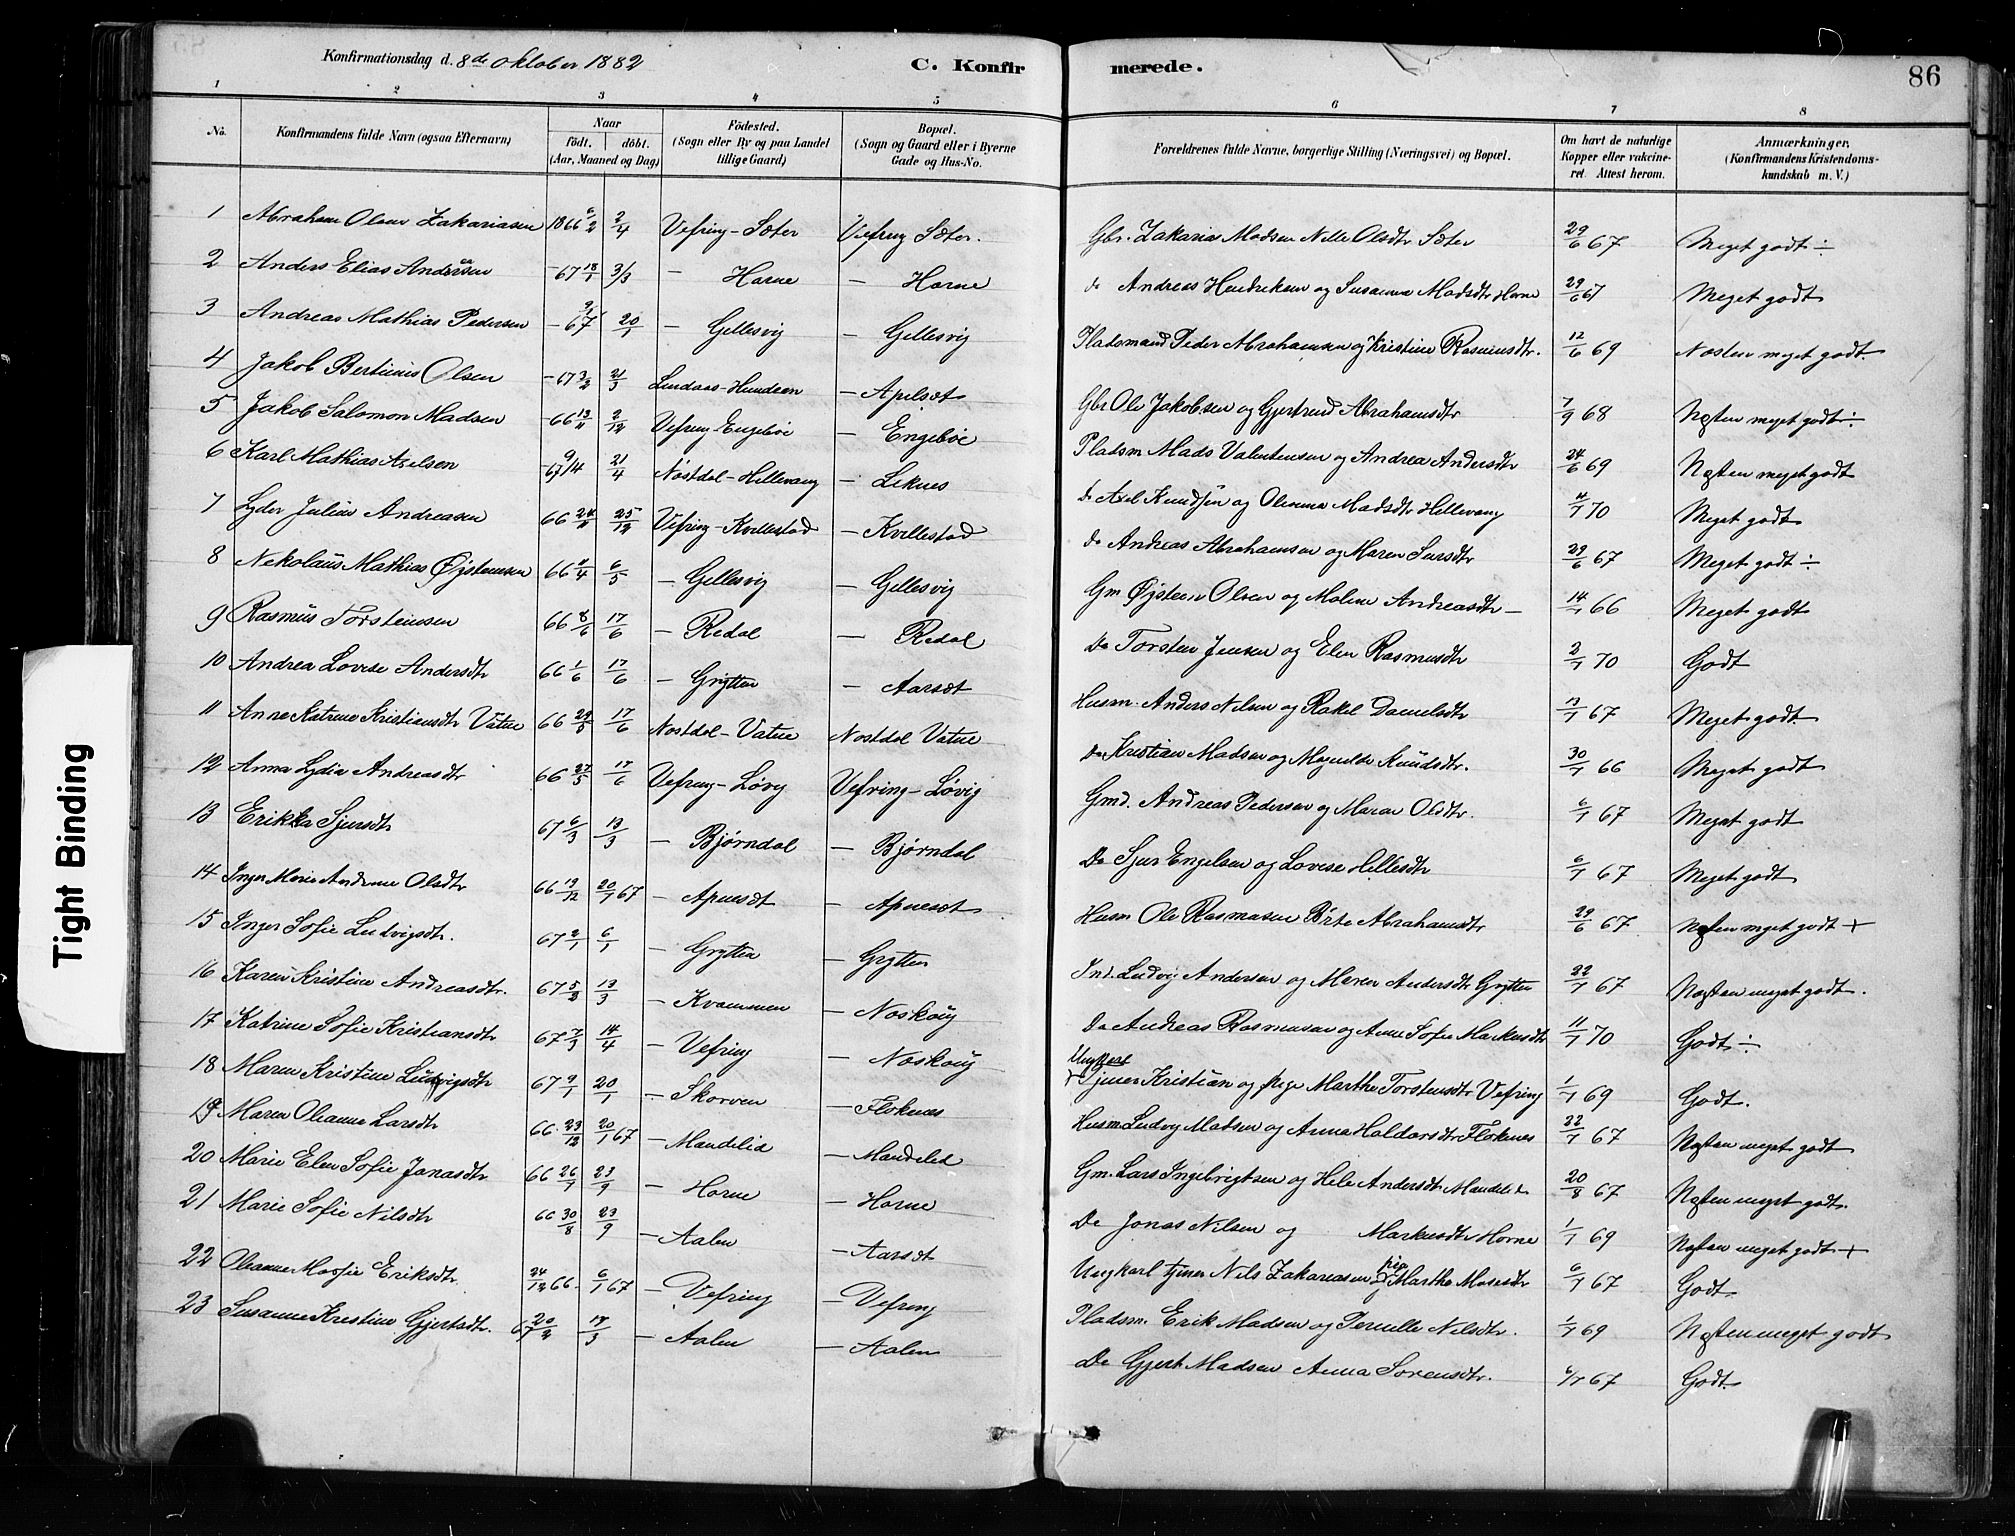 Konfirmationsdag d. 8de Oktober 1882 C. Konfirmerede. 86
1 2 3 4 5 6 7 8
No. Konfirmandens fulde Navn (ogsaa Efternavn) Naar født. døbt. (Aar, Maaned og Dag) Födested. (Sogn eller By og paa Landet tillige Gaard) Bopæl. (Sogn og Gaard eller i Byerne Gade og Hus-No. Forældrenes fulde Navne, borgerlige Stilling (Næringsvei) og Bopæl. Om havt de naturlige Kopper eller vakcineret. Attest herom. Anmærkninger. (Konfirmandens Kristendomskundskab m. V.)
1 Abraham Olsen Zakariasen 1866 6/2 2/4 Vefring - Sæter Vefring Sæter. Gbr. Zakarias Madsen Nille Olsdtr Sæter 29/6 67 Meget godt ÷
2 Anders Elias Andersen - 67 18/1 3/3 - Horne - Horne do Andreas Hendriksen og Susanna Madsdtr Horne 29/6 67 Meget godt
3 Andreas Mathias Pedersen - 67 9/1 20/1 - Gellesvig - Gellesvig Pladsmand Peder Abrahamsen og Kristine Rasmusdtr. 12/6 69 Næsten meget godt
4 Jakob Bertinius Olsen - 67 3/2 21/3 Lindaas - Hundeen - Apelsæt Gbr Ole Jakobsen og Gjertrud Abrahamsdtr 7/9 68 Næsten meget godt ÷
5 Jakob Salomon Madsen - 66 13/11 2/12 Vefring Engebøe - Engebøe Pladsm Mads Valentensen og Andrea Andersdtr 24/6 69 Næsten meget godt
6 Karl Mathias Axelsen - 67 9/4 21/4 Nostdal - Hillevang - Leknes do Axel Knudsen og Oleanna Madsdtr Hillevang 4/7 70 Meget godt
7 Lyder Julius Andreasen 66 24/11 25/12 Vefring - Kvillestad - Kvillestad do Andreas Abrahamsen og Maren Larsdtr 29/6 67 Meget godt ÷
8 Nekolaus Mathias Øjstensen 66 4/4 6/5 - Gellesvig - Gellesvig Gm Øjsten Olsen og Malene Andreasdtr - 14/7 66 Meget godt
9 Rasmus Torstensen 66 8/6 17/6 - Redal - Redal Do Torsten Jensen og Elen Rasmusdtr 2/7 70 Godt
10 Andrea Lovise Andersdtr 66 1/6 17/6 - Grytten - Aarsæt Husm. Anders Nilsen og Rakel Danielsdtr 13/7 67 Meget godt
11 Anne Katrine Kristiansdtr Vatne 66 29/5 17/6 Nostdal - Vatne Nostdal Vatne Do Kristian Madsen og Magnilde Knudsdtr. 30/7 66 Meget godt
12 Anna Lydia Andreasdtr 66 27/5 17/6 Vefring - Løvig Vefring - Løvig Gmd. Andreas Pedersen og Maren Olsdtr. 6/7 67 Meget godt
13 Erikka Sjursdtr 67 6/3 13/3 - Bjørndal - Bjørndal Do Sjur Engelsen og Lovise Hillesdtr 6/7 67 Meget godt
14 Inger Marie Andrine Olsdtr 66 19/12 20/1 67 - Apnesæt - Apnesæt Husm Ole Rasmusen Brite Abrahamsdtr 29/6 67 Næsten meget godt +
15 Inger Sofie Ludvigsdtr. 67 2/1 6/1 - Grytten - Grytten Ind. Ludvig Andersen og Maren Andersdtr Grytten 22/7 67 Næsten meget godt.
16 Karen Kristine Andreasdtr. 67 5/2 13/3 - Kvammen - Noskoug Do Andreas Rasmussen og Anne Sofie Markusdtr 11/7 70 Godt ÷
17 Katrine Sofie Kristiansdtr 67 7/3 14/4 - Vefring - Noskoug Ungkarl Tjener Kristian og Pige Marthe Torstensdtr Vefring 1/7 69 Godt.
18 Maren Kristine Ludvigsdtr 67 9/1 20/1 - Skorven - Floknes Husm Ludvig Madsen og Anna Haldorsdtr Floknes 22/7 67 Næsten meget godt
19 Maren Oleanna Larsdtr 66 23/12 20/1 67 - Mandelid - Mandelid Gm. Lars Ingebrigtsen og Hele Andersdt Mandelid 20/8 67 Næsten meget godt.
20 Marie Elen Sofie Jonasdtr 66 26/7 23/9 - Horne - Horne Do Jonas Nilsen og Markusdtr Horne 1/7 69 Næsten meget godt +
21 Marie Sofie Nilsdtr 66 30/8 23/9 - Aalen - Aarsæt Ungkarl tjener Nils Zakariasen pige Marthe Mosesdtr 6/7 67 Godt
22 Oleanne Marie Eriksdtr. 24/12 66 6/1 67 - Vefring - Vefring Pladsm. Erik Madsen og Pernille Nilsdtr. 1/7 69 Næsten meget godt
23 Susanne Kristine Gjertsdtr. 67 20/2 17/3 - Aalen - Aalen Do Gjert Madsen Anna Sorensdtr. 6/7 67 Godt
Tight Binding